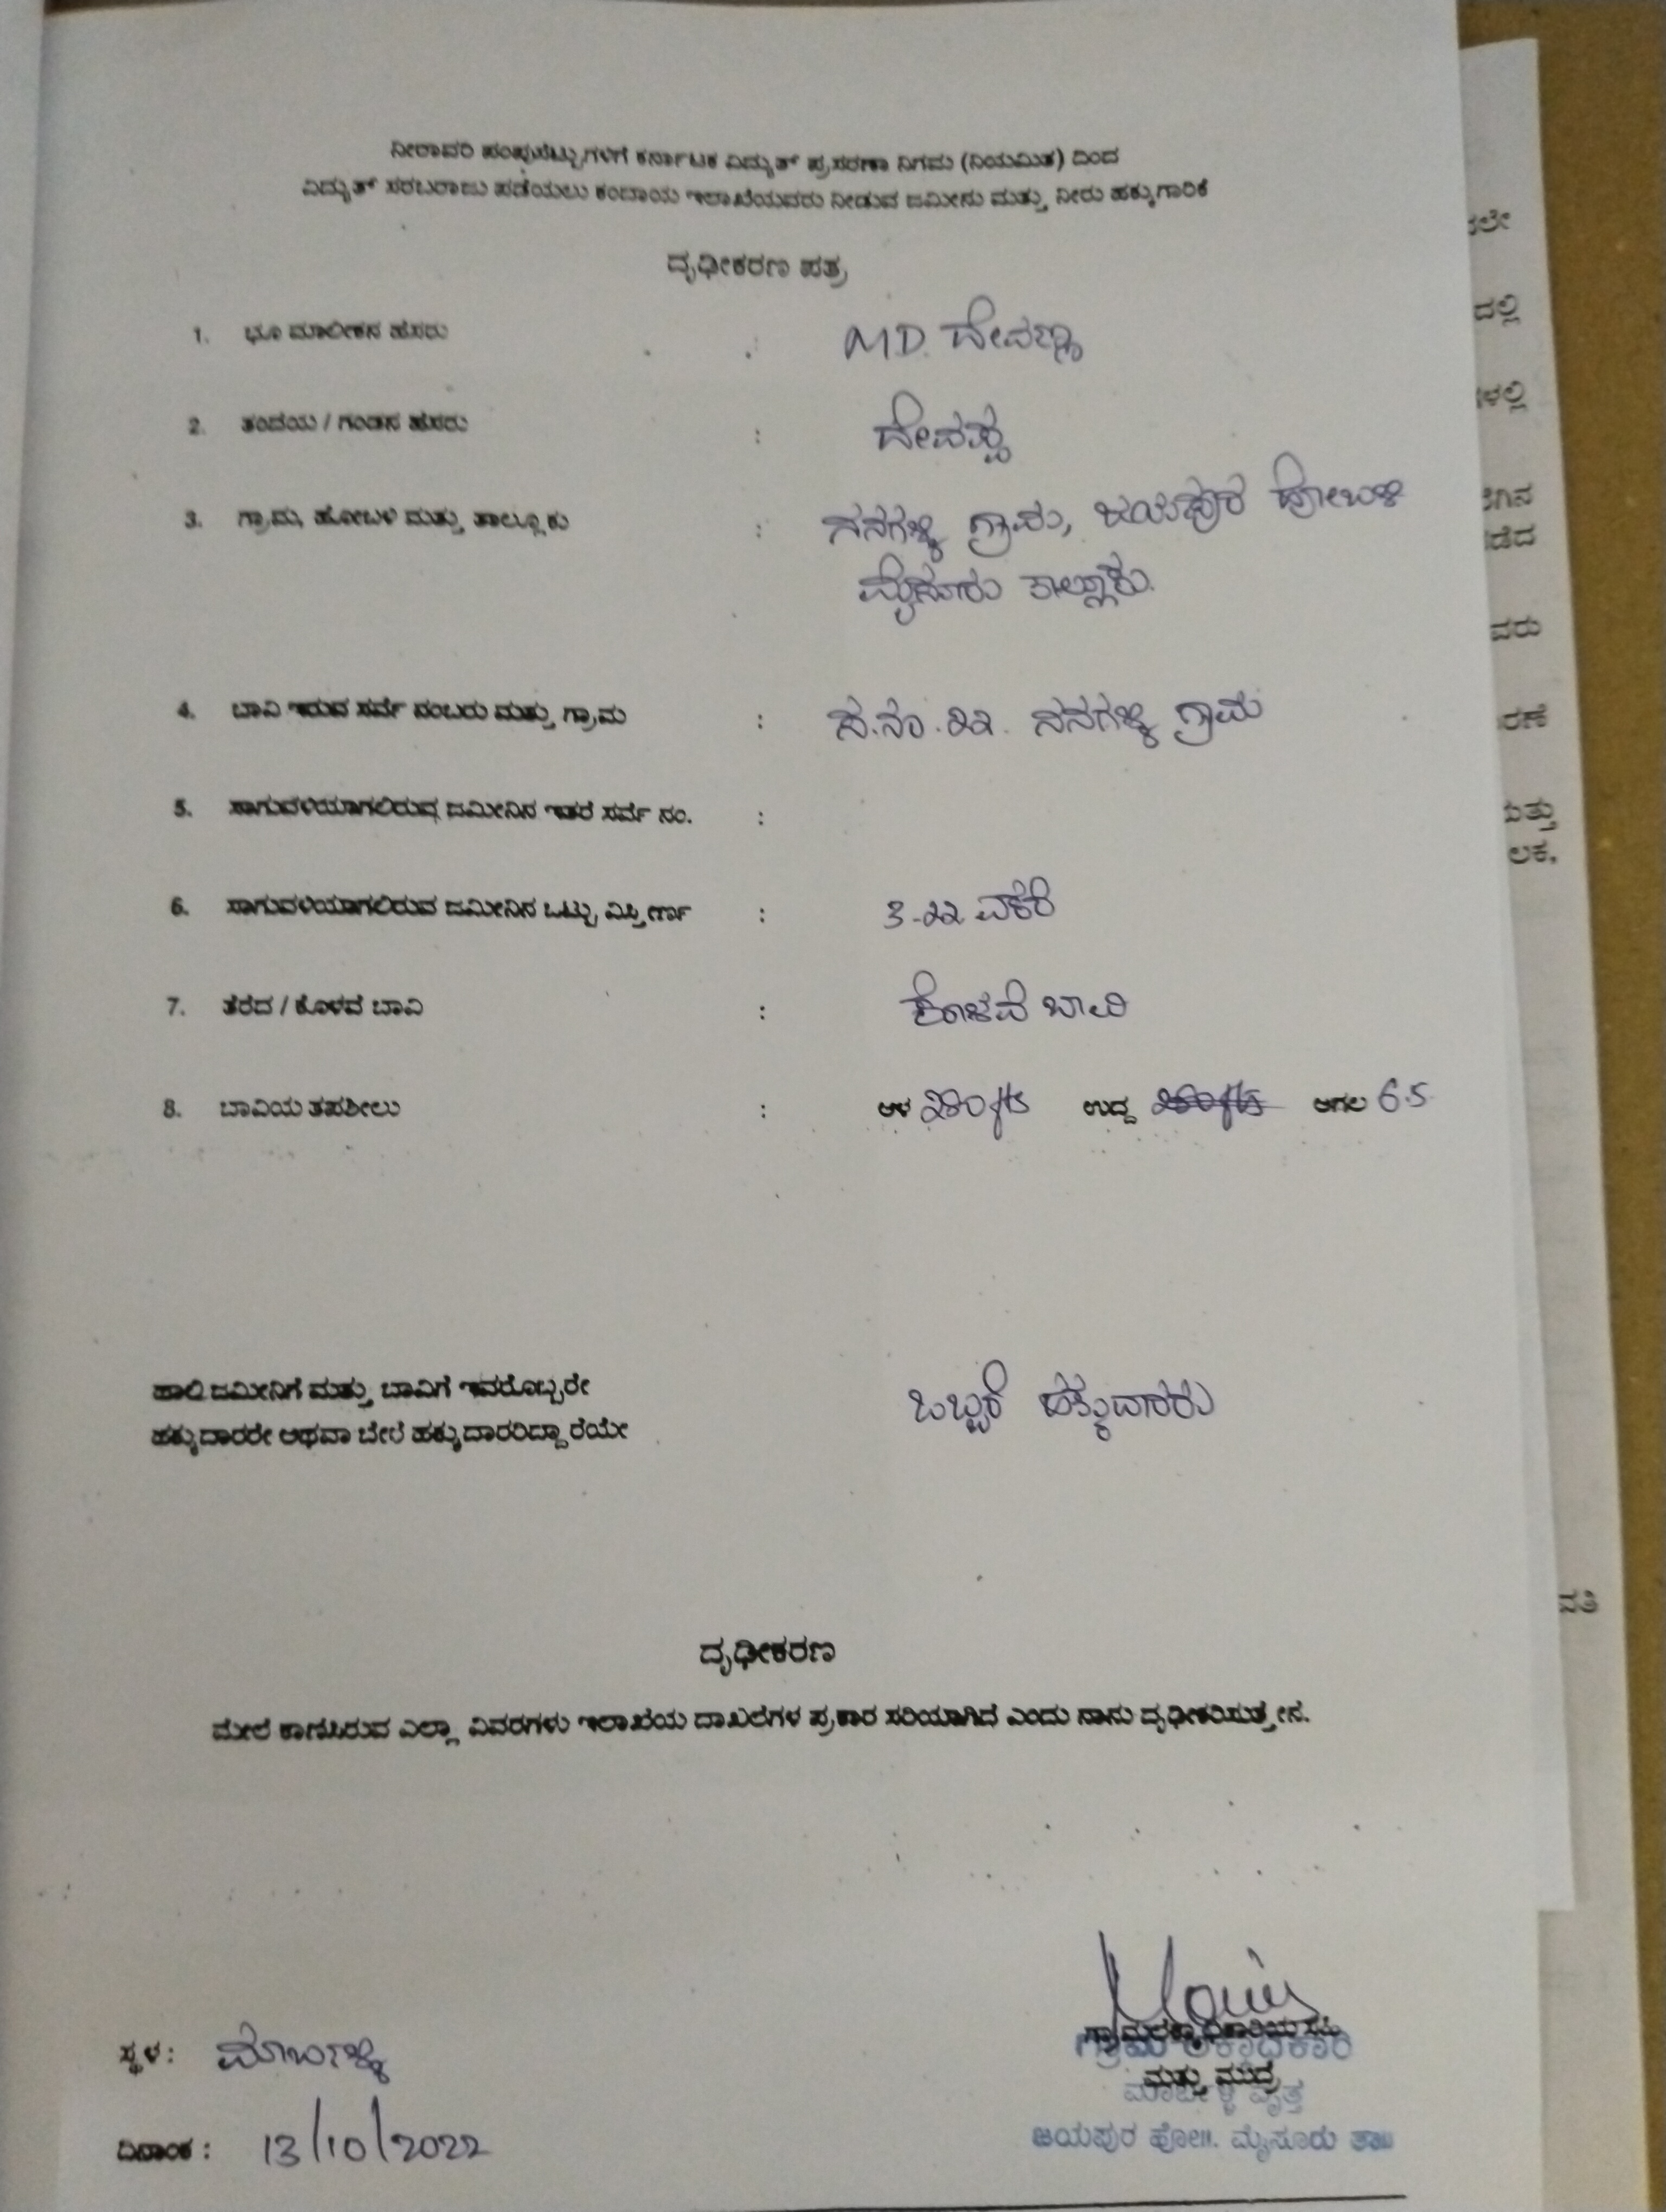 ನೀರಾವರಿ ಪಂಪುಸೆಟ್ಟುಗಳಿಗೆ ಕರ್ನಾಟಕ ವಿದ್ಯುತ್ ಪ್ರಸರಣಾ ನಿಗಮ (ನಿಯಮಿತ) ದಿಂದ
ವಿದ್ಯುತ್ ಸರಬರಾಜು ಪಡೆಯಲು ಕಂದಾಯ ಇಲಾಖೆಯವರು ನೀಡುವ ಜಮೀನು ಮತ್ತು ನೀರು ಹಕ್ಕುಗಾರಿಕೆ
ದೃಢೀಕರಣ ಪತ್ರ
1. ಭೂ ಮಾಲೀಕನ ಹೆಸರು : MD. ದೇವಣ್ಣ
2. ತಂದೆಯ / ಗಂಡನ ಹೆಸರು : ದೇವಪ್ಪ
3. ಗ್ರಾಮ, ಹೋಬಳಿ ಮತ್ತು ತಾಲ್ಲೂಕು : ಗ್ರಾಮ, ಜಯಪುರ ಹೋಬಳಿ
ಮೈಸೂರು ತಾಲ್ಲೂಕು.
4. ಬಾವಿ ಇರುವ ಸರ್ವೆ ನಂಬರು ಮತ್ತು ಗ್ರಾಮ : ಸ.ನಂ. ೩೩. ಗ್ರಾಮ
5. ಸಾಗುವಳಿಯಾಗಲಿರುವ ಜಮೀನಿನ ಇತರೆ ಸರ್ವೆ ನಂ. :
6. ಸಾಗುವಳಿಯಾಗಲಿರುವ ಜಮೀನಿನ ಒಟ್ಟು ವಿಸ್ತೀರ್ಣ : 3-22 ಎಕರೆ
7. ತೆರೆದ / ಕೊಳವೆ ಬಾವಿ : ಕೊಳವೆ ಬಾವಿ
8. ಬಾವಿಯ ತಪಶೀಲು : ಆಳ 280 fts ಉದ್ದ ಅಗಲ 6.5
ಹಾಲಿ ಜಮೀನಿಗೆ ಮತ್ತು ಬಾವಿಗೆ ಇವರೊಬ್ಬರೇ
ಹಕ್ಕುದಾರರೇ ಅಥವಾ ಬೇರೆ ಹಕ್ಕುದಾರರಿದ್ದಾರೆಯೇ
ಒಬ್ಬರೆ ಹಕ್ಕುದಾರರು
ದೃಢೀಕರಣ
ಮೇಲೆ ಕಾಣಿಸಿರುವ ಎಲ್ಲಾ ವಿವರಗಳು ಇಲಾಖೆಯ ದಾಖಲೆಗಳ ಪ್ರಕಾರ ಸರಿಯಾಗಿದೆ ಎಂದು ನಾನು ದೃಢೀಕರಿಸುತ್ತೇನೆ.
ಗ್ರಾಮಲೆಕ್ಕಾಧಿಕಾರಿಯ ಸಹಿ
ಗ್ರಾಮ ಲೆಕ್ಕಾಧಿಕಾರಿ
ಸ್ಥಳ :
ಮತ್ತು ಮುದ್ರೆ
ವೃತ್ತ
ಜಯಪುರ ಹೋ॥. ಮೈಸೂರು ತಾ॥
ದಿನಾಂಕ : 13/10/2022